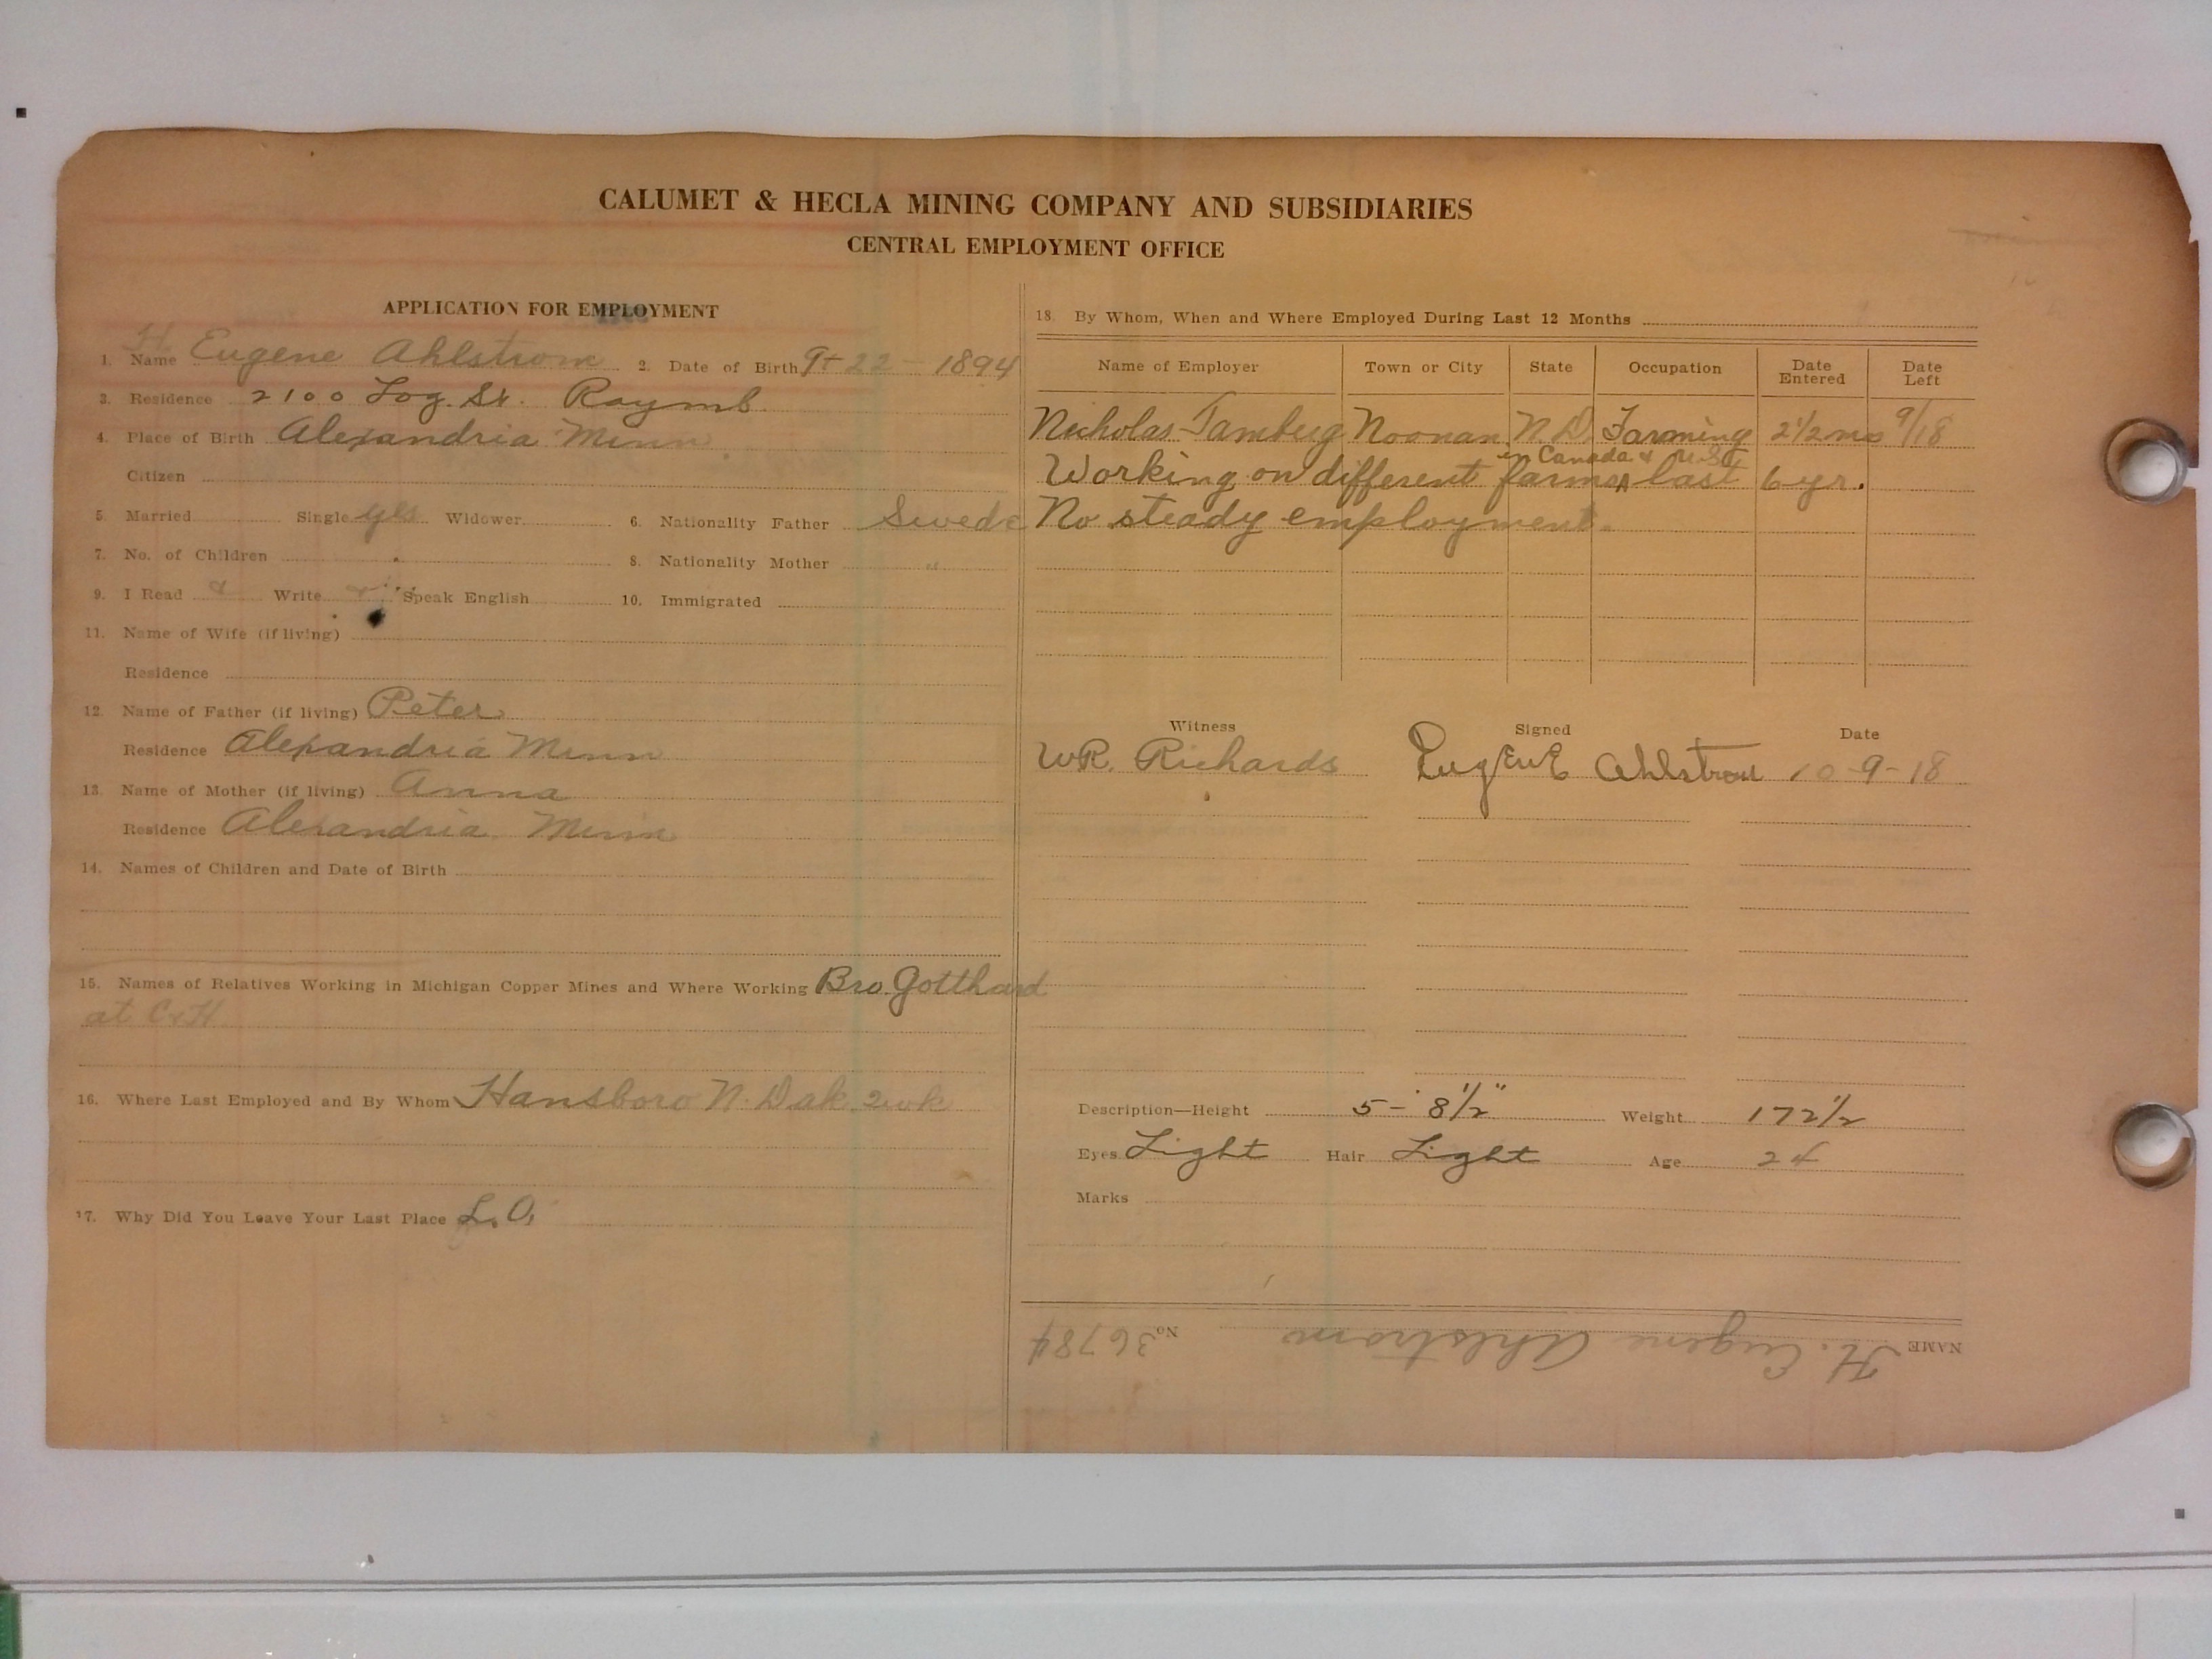 CALUMET & HECLA MINING COMPANY AND SUBSIDIARIES
CENTRAL EMPLOYMENT OFFICE
APPLICATION FOR EMPLOYMENT
1. Name H. Eugene Ahlstrom 2. Date of Birth 9-22-1894
3. Residence 2100 Log. St. Raymb.
4. Place of Birth Alexandria Minn
Citizen
5. Married Single yes Widower 6. Nationality Father Swede
7. No. of Children 8. Nationality Mother "
9. I Read Write Speak English 10. Immigrated
11. Name of Wife (if living)
Residence
12. Name of Father (if living) Peter
Residence Alexandria Minn
13. Name of Mother (if living) Anna
Residence Alexandria Minn
14. Names of Children and Date of Birth
15. Names of Relatives Working in Michigan Copper Mines and Where Working Bro. Gotthard
at C&H
16. Where Last Employed and By Whom Hansboro N. Dak. 2wk
17. Why Did You Leave Your Last Place L. O.
18. By Whom, When and Where Employed During Last 12 Months
Name of Employer Town or City State Occupation Date Entered Date Left
Nicholas Tamberg Noonan N.D. Farming 2 1/2 mo 9/18
in Canada & U.S.
Working on different farms last 6 yr.
No steady employment.
Witness Signed Date
W.R. Richards Eugene Ahlstrom 10-9-18
Description—Height 5-8 1/2" Weight 172 1/2
Eyes Light Hair Light Age 24
Marks
NAME H. Eugene Ahlstrom No 36784